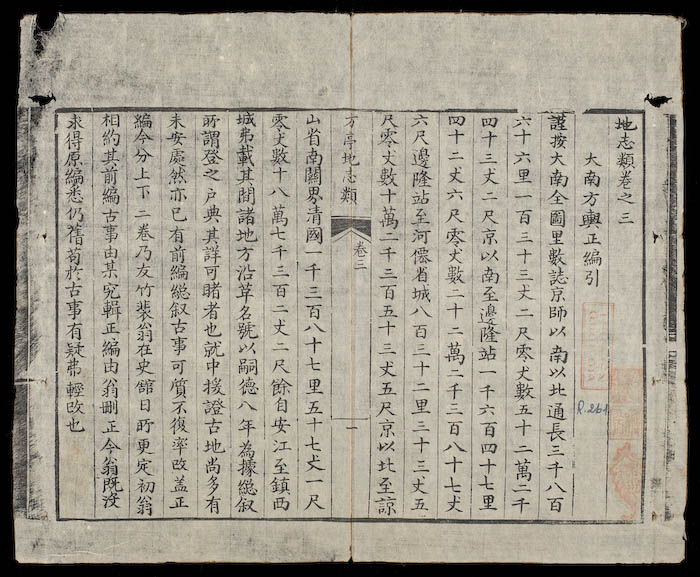 地志類卷之三
大南方輿正編引
謹按大南全圖里數誌京師以南以北通長三千八百
六十六里一百三十三丈二尺零丈數五十二萬二千
四十三丈二尺京以南至邊隆站一千六百四十七里
四十二丈六尺零丈數二十二萬二千三百八十七丈
六尺邊隆站至河僊省城八百三十二里三十三丈五
尺零丈數十萬二千三百五十三丈五尺京以北至諒
方亭地志類
卷三
一
山省南關界清國一千三百八十七里五十七丈一尺
零丈數十八萬七千三百二丈二尺餘自安江至鎮西
城弗載其間諸地方沿革名號以嗣德八年為據總叙
所謂登之户典其詳可睹者也就中援證古地尚多有
未安處然亦已有前編總叙古事可質不復率改蓋正
編今分上下二卷乃友竹裴翁在史舘日所更定初翁
相約其前編古事由某究輯正編由翁刪正今翁既沒
求得原編悉仍舊苟於古事有疑弗輕改也
R.261